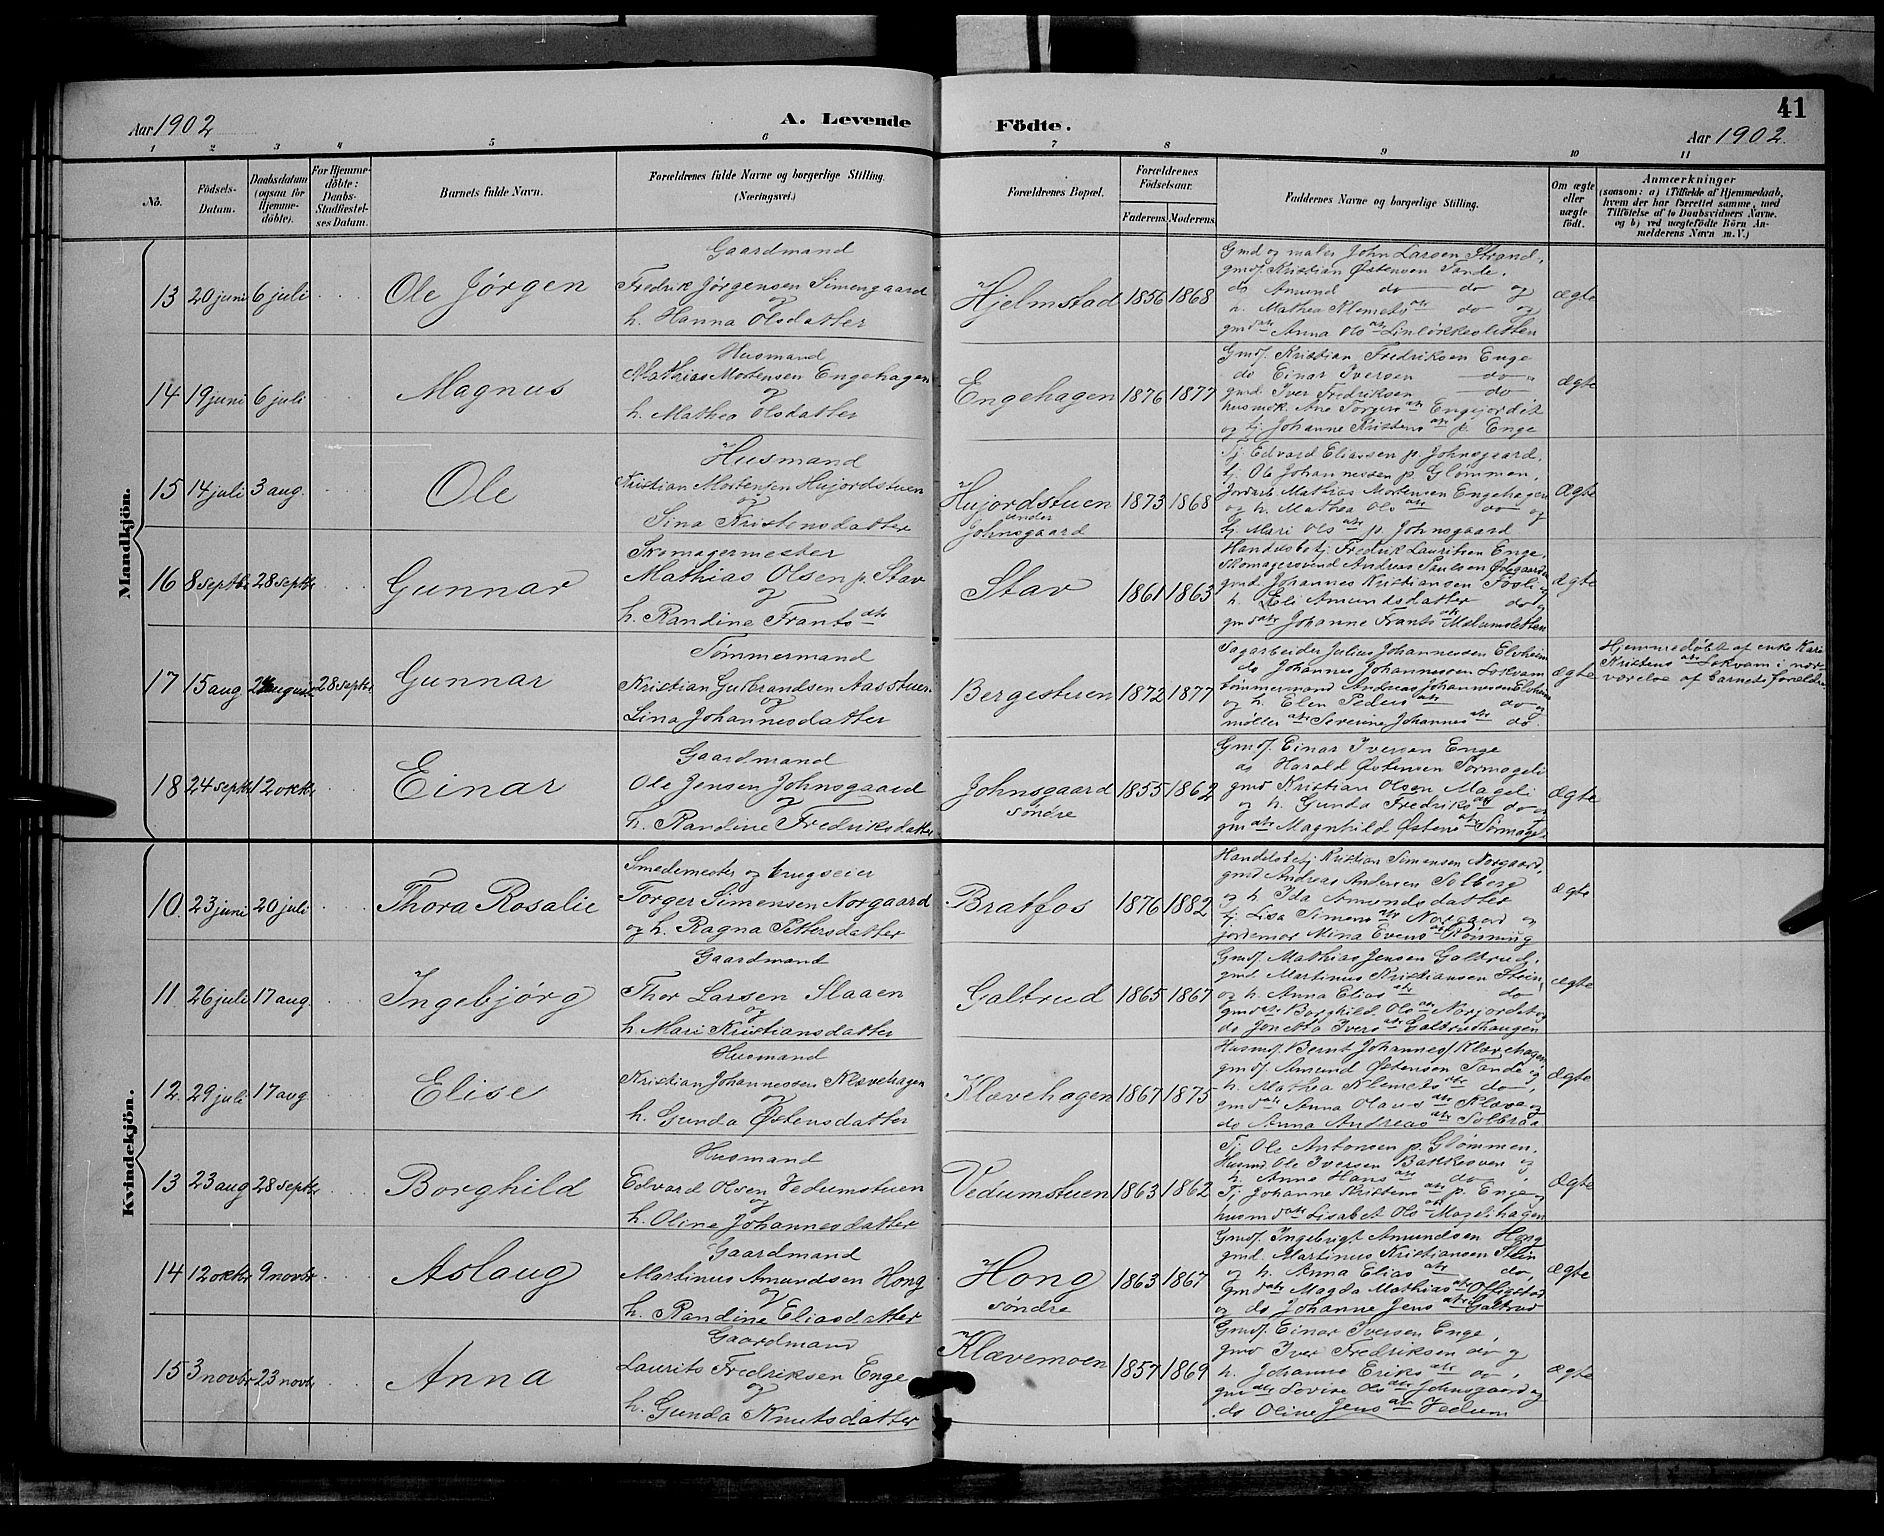 41
Aar 1902
A. Levende
Födte.
Aar 1902.
1 2 3 4 5 6 7 8 9 10 11
No.
Födsels-Datum.
Daabsdatum (ogsaa for Hjemmedöbte).
For Hjemmedöbte: Daabs-Stadfæstelses Datum.
Barnets fulde Navn.
Forældrenes fulde Navne og borgerlige Stilling. (Næringsvei.)
Forældrenes Bopæl.
Forældrenes Födselsaar.
Faderens. Moderens.
Faddernes Navne og borgerlige Stilling.
Om ægte eller uægte födt.
Anmærkninger
(saasom: a) i Tilfælde af Hjemmedaab, hvem der har forrettet samme, med Tilföielse af to Daabsvidners Navne. og b) ved uægtefödte Börn Anmelderens Navn m. V.)
Mandkjön.
13 20 juni 6 juli
Ole Jørgen
Gaardmand
Fredrik Jørgensen Simengaard
og
h. Hanna Olsdatter
Hjelmstad
1856 1868
Gmd og maler John Larsen Strand,
gmds. Kristian Østensen Sande,
do Amund do do og
h. Mathea Klemetsdtr do og
gmddtr Anna Olsdtr Linløkkesletten
ægte
14 19 juni 6 juli
Magnus
Husmand
Mathias Mortensen Engehagen
og
h. Mathea Olsdatter
Engehagen
1876 1877
Gmds. Kristian Fredriksen Enge
do Einar Iversen do
gmd Iver Fredriksen do
husmk. Ane Torgersdtr Engejordet
og tj. Johanne Kristensdtr p. Enge
ægte
15 14 juli 3 aug.
Ole
Husmand
Kristian Mortensen Hujordstuen
og
Sina Kristensdatter
Hujordstuen
under
Johnsgaard
1873 1868
Tj. Edvard Eliassen p. Johnsgaard,
tj. Ole Johannessen p. Glømmen,
Jordarb. Mathias Mortensen Engehagen
og h. Mathea Olsdtr do og
G. Mari Olsdtr p. Johnsgaard
Ægte
16 8 septbr 28 septbr
Gunnar
Skomagermester
Mathias Olsen p. Stav
og
h. Randine Frantsdtr
Stav
1861 1863
Handelsbetj. Fredrik Lauritsen Enge,
Skomagersvend Andreas Paulsen Ødegaarden
gmd. Johannes Kristiansen Fosli
h. Eli Amundsdatter do og
gmddtr Johanne Frantsdtr Melumsletten
ægte
17 15 aug 24 august 28 septbr
Gunnar
Tømmermand
Kristian Gulbrandsen Aasstuen
og
Lina Johannesdatter
Bergestuen
1872 1877
Sagarbeider Julius Johannessen Elvheim
do Johannes Johannessen Lokvam
tømmermand Andreas Johannessen Elvheim
og h. Elen Pedersdtr do og
møllerdtr Severine Johannesdtr do.
ægte
Hjemmedøbt af enke Kari
Kristensdtr Lokvam i nær-
værelse af barnets forældre
18 24 septbr 12 oktbr
Einar
Gaardmand
Ole Jensen Johnsgaard
og
h. Randine Fredriksdatter
Johnsgaard
søndre
1855 1862
Gmds. Einar Iversen Enge
do Harald Østensen Sormageli
gmd Kristian Olsen Mageli
og h. Gunda Fredriksdtr do og
gmdtr Magnhild Østensdtr Sormageli
ægte
Kvindekjön.
10. 23 juni 20 juli
Thora Rosalie
Smedemester og brugseier
Torger Simensen Norgaard
og h. Ragna Pettersdatter
Bratfos
1876 1882
Handelsbetj. Kristian Simensen Norgaard,
gmd Andreas Andersen Solberg
og h. Ida Amundsdatter
tj. Lisa Simensdtr Norgaard og
jordemor Mina Evensdtr Rønning
ægte
11. 26 juli 17 aug.
Ingebjørg
Gaardmand
Thor Larsen Slaaen
og
h. Mari Kristiansdatter
Galtrud
1865 1867
Gmds. Mathias Jensen Galtrud,
gmd. Martinus Kristiansen Stein,
og h. Anna Eliasdtr do
gmddtr Borghild Olsdtr Norjordet og
do Jonetta Iversdtr Galtrudhaugen
ægte
12. 29 juli 17 aug
Elise
Husmand
Kristian Johannessen Klævehagen
og
h. Gunda Østensdatter
Klævehagen
1867 1875
Husms. Bernt Johannes. Klævehagen
gmds. Amund Østensen Sande og
h. Mathea Klemetsdtr do,
gmddtr Anna Olausdtr Klæve og
do Anna Andreasdtr Solbraa
ægte
13 23 aug 28 septbr
Borghild
Husmand
Edvard Olsen Vedumstuen
og
h. Oline Johannesdatter
Vedumstuen
1863 1862
Tj. Ole Antonsen p. Glømmen,
Husmd Ole Iversen Bakkesven og
h. Anne Hansdtr do,
Tj. Johanne Kristensdtr p. Enge og
husmddtr Lisabet Olsdtr Magelihagen
ægte
14 12 oktbr 9 novbr
Aslaug
Gaardmand
Martinus Amundsen Hong
og
h. Randine Eliasdatter
Hong
søndre
1863 1867
Gmds. Ingebrigt Amundsen Hong
gmd. Martinus Kristiansen Stein
og h. Anna Eliasdtr do,
Gmddtr Magda Mathiasdtr Offigstad
og do Johanne Jensdtr Galtrud
ægte
15 3 novbr 23 novbr
Anna
Gaardmand
Laurits Fredriksen Enge
og
h. Gunda Knutsdatter
Klævemoen
1857 1869
Gmds. Einar Iversen Enge,
gmd Iver Fredriksen do og
h. Johanne Eriksdtr do,
gmddtr Lovise Olsdtr Johnsgaard og
do Oline Jensdtr Vedum
ægte